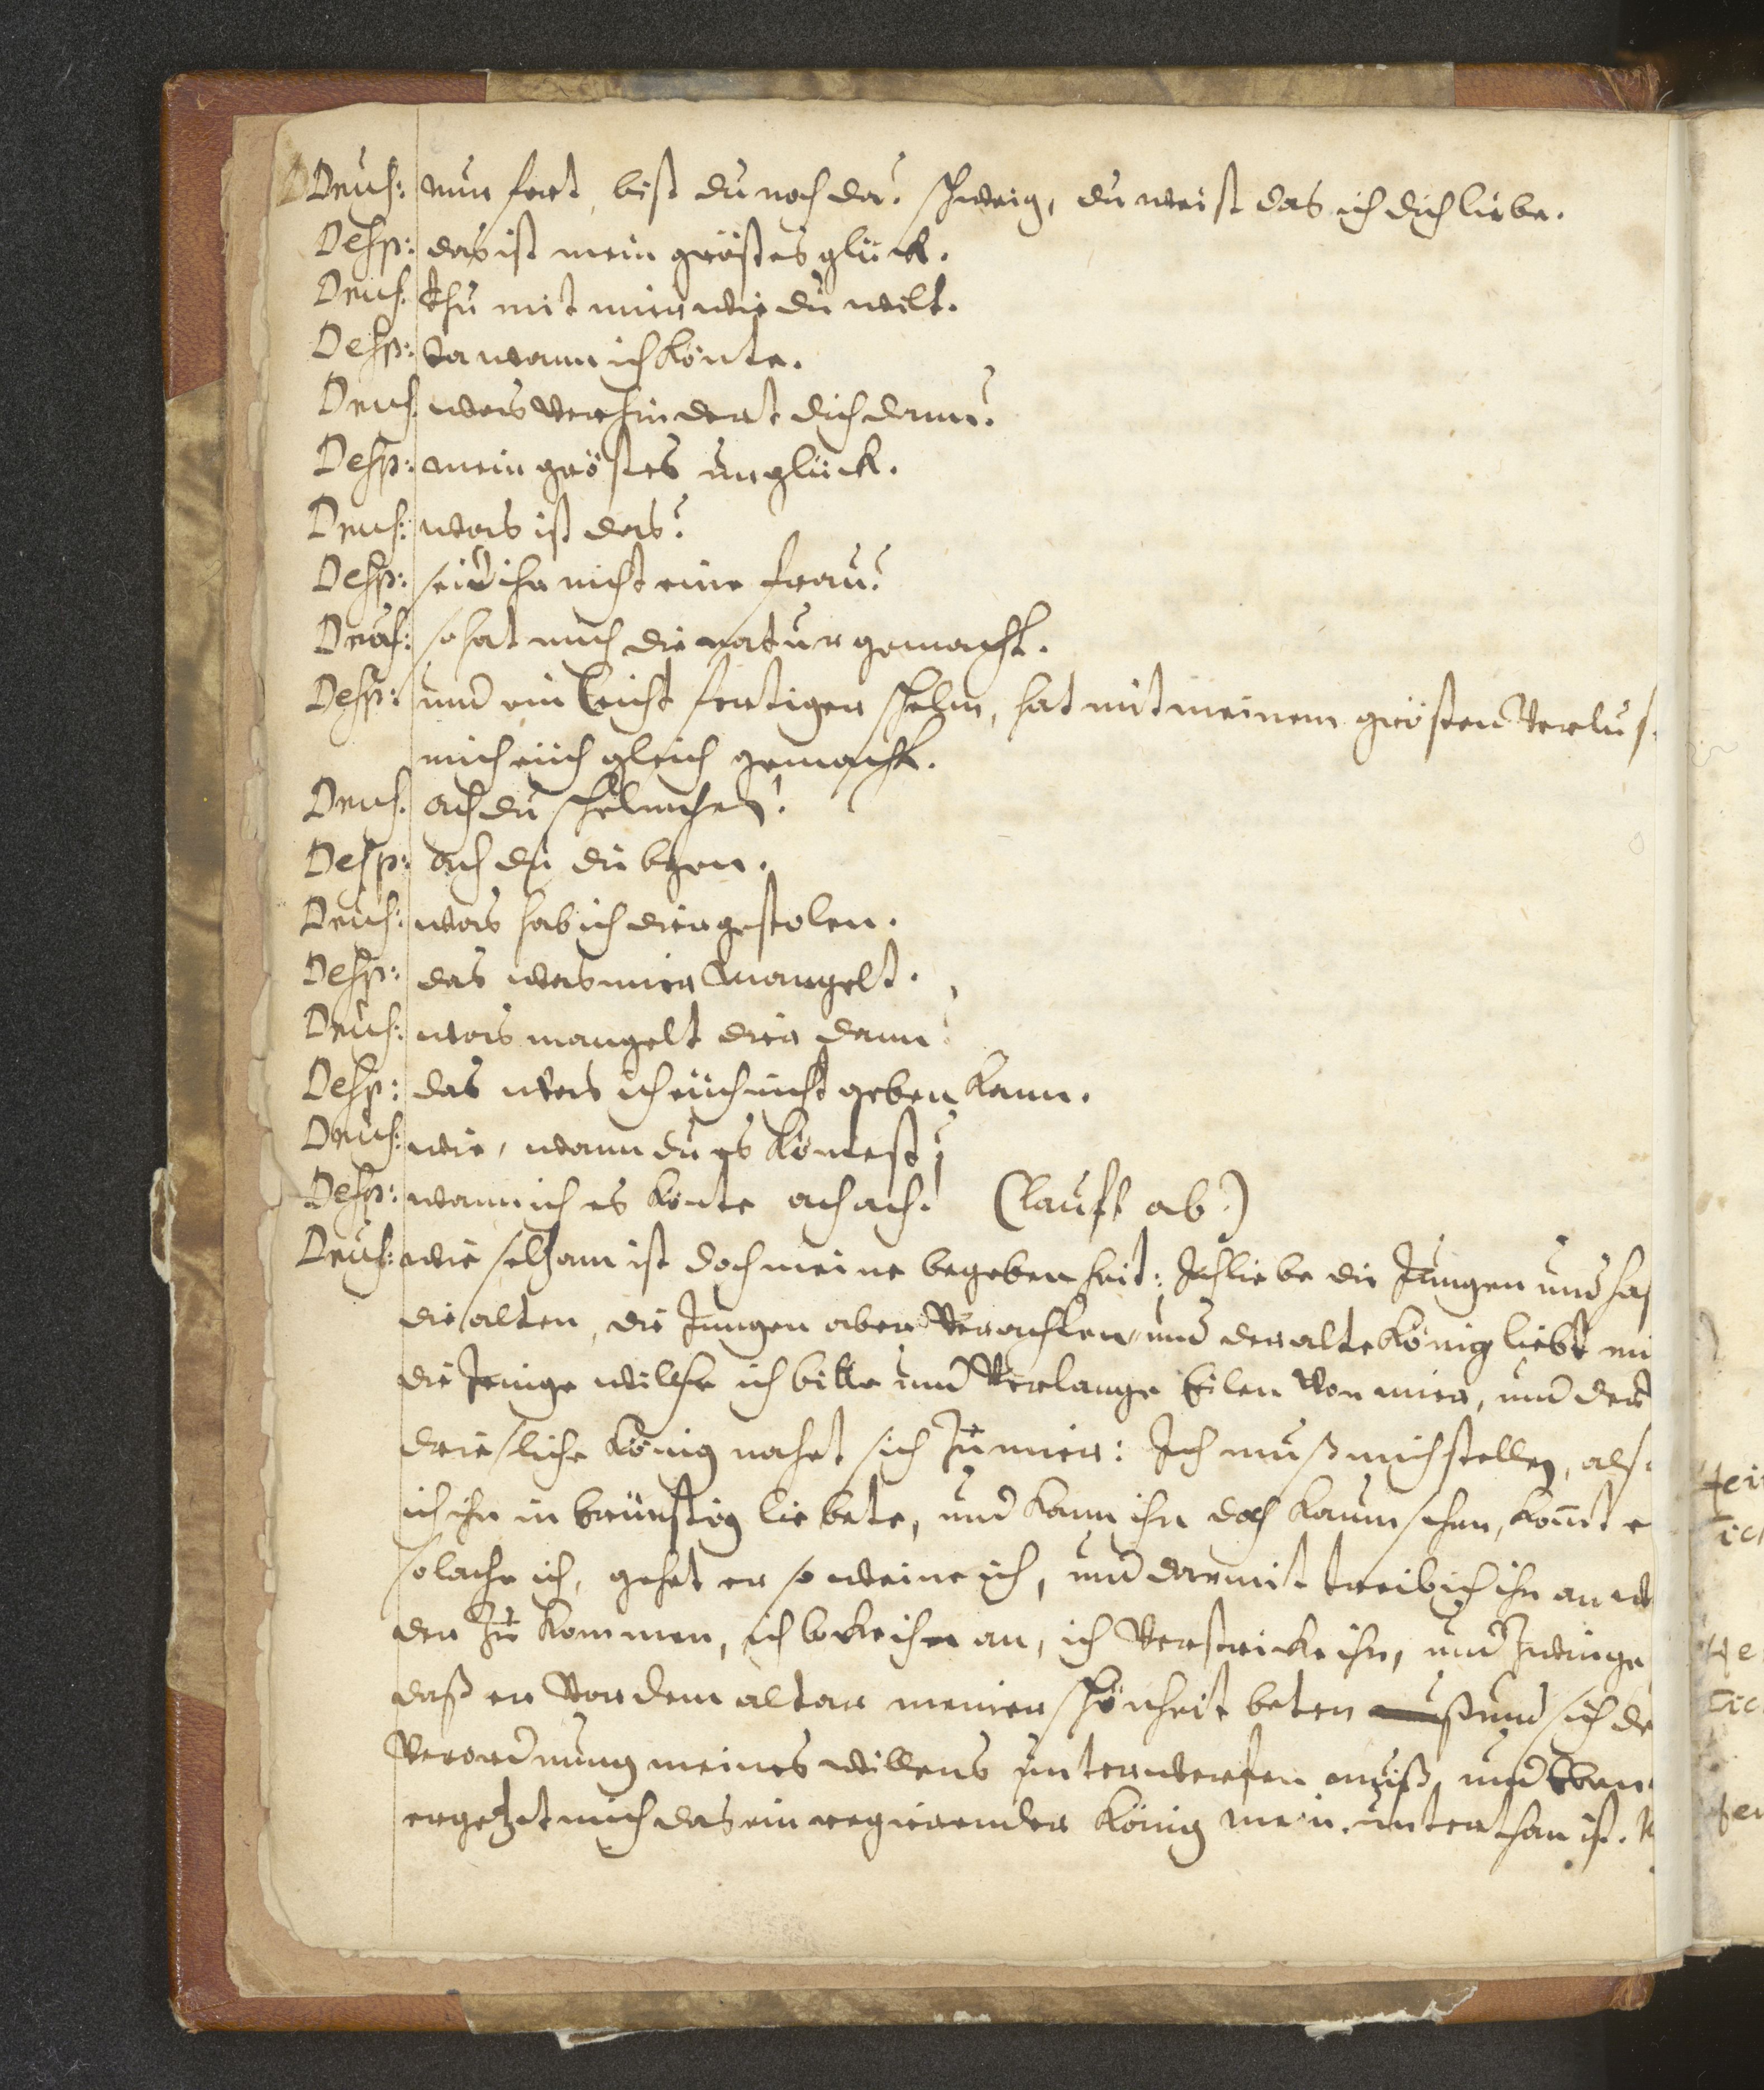 Deus: nun fort, bist du noch da? schweig, du weist das ich dich liebe.
Desp: das ist mein gröstes glück.
Deus: thu mit mir wie du wilt.
Desp: Ja wann ich könte.
Deus: was verhindert dich dann?
Desp: mein gröstes unglück.
Deus: was ist das?
Desp: seid ihr nicht eine frau?
Deus: so hat mich die natur gemacht.
Desp: und ein leicht fertiger schelm, hat mit meinem grösten verlus
mich euch gleich gemacht.
Deus: ach du schelmchen!
Desp: ach du diebgen.
Deus: was hab ich dier gestolen.
Desp: das was mier mangelt.
Deus: was mangelt dier dann?
Desp: das was ich euch nicht geben kann.
Deus: wie, wann du es köntest?
Desp: wann ich es könte ach ach! (lauft ab.)
Deus: wie selzam ist doch meine begebenheit: Ich liebe die Jungen und has
die alten, die Jungen aber verachten, und der alte König liebt mi
die Jenige welche ich bitte und verlange Eilen von mier, und der
driesliche König nahet sich zu mier: Ich muß mich stellen, als
ich ihn in brünstig liebete, und kann ihn doch kaum sehen, komt e
so lache ich, gehet er so weine ich, und darmit treib ich ihn an w
der zu kommen, ich locke ihn an, ich verstricke ihn, und zwinge
daß er vor dem altar meiner schönheit beten und sich de
verordnung meines willens unterwerfen muß, und
ergetzet mich das ein regierender König mein unterthan ist.